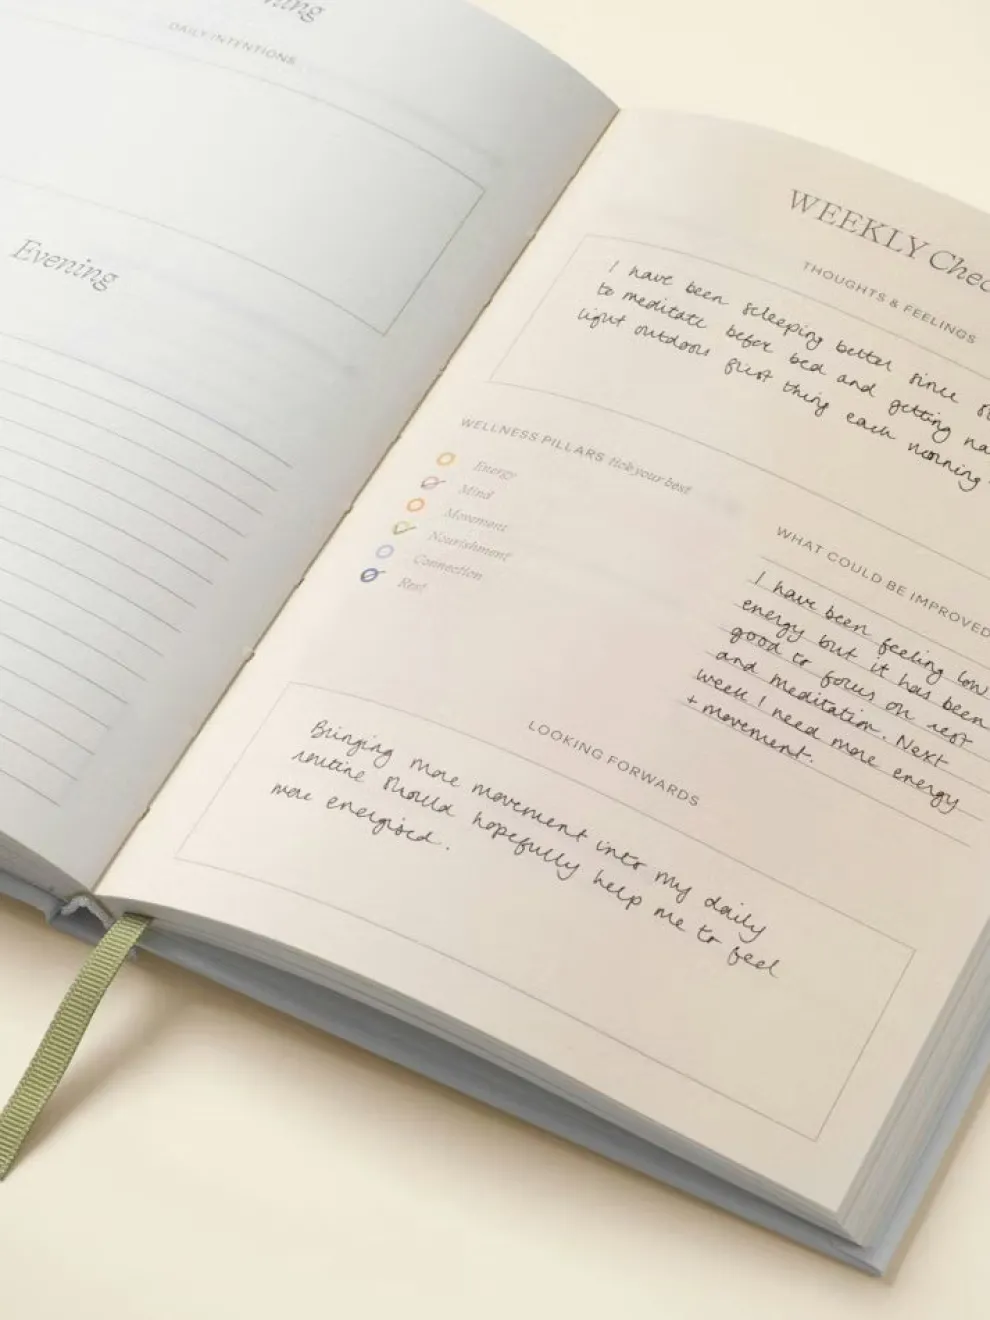 ning
DAILY INTENTIONS
Evening
WEEKLY Chec
THOUGHTS & FEELINGS
I have been sleeping better since st
to meditate before bed and getting na
light outdoors first thing each morning
WELLNESS PILLARS tick your best
Energy
Mind
Movement
Nourishment
Connection
Rest
WHAT COULD BE IMPROVED
I have been feeling low
energy but it has been
good to focus on rest
and meditation. Next
week I need more energy
+ movement.
LOOKING FORWARDS
Bringing more movement into my daily
routine should hopefully help me to feel
more energised.